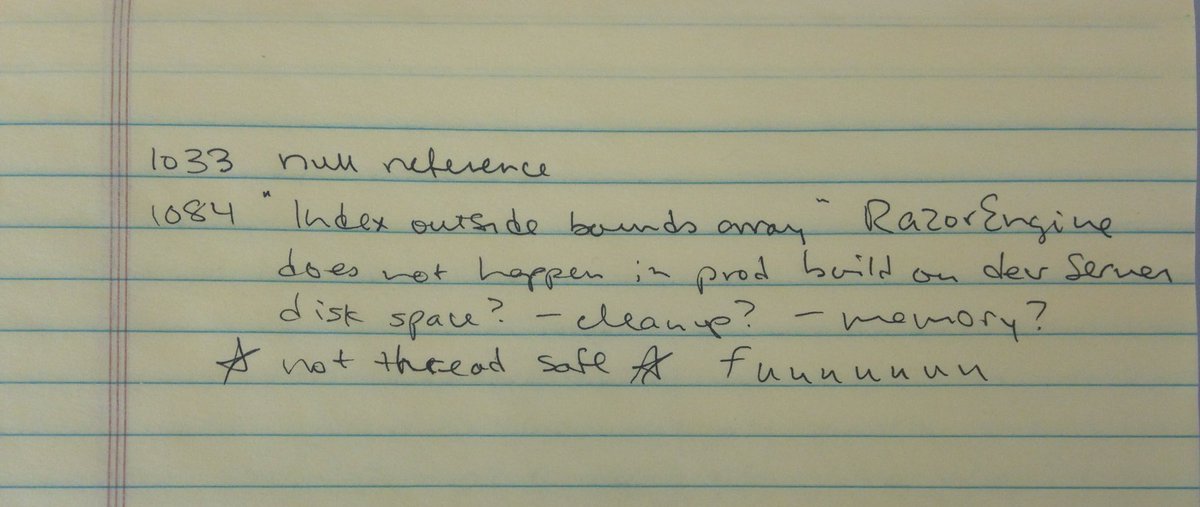 1033 null reference
1084 "Index outside bounds array" RazorEngine
does not happen in prod build on dev server
disk space? - cleanup? - memory?
☆ not thread safe ☆ fuuuuuuu